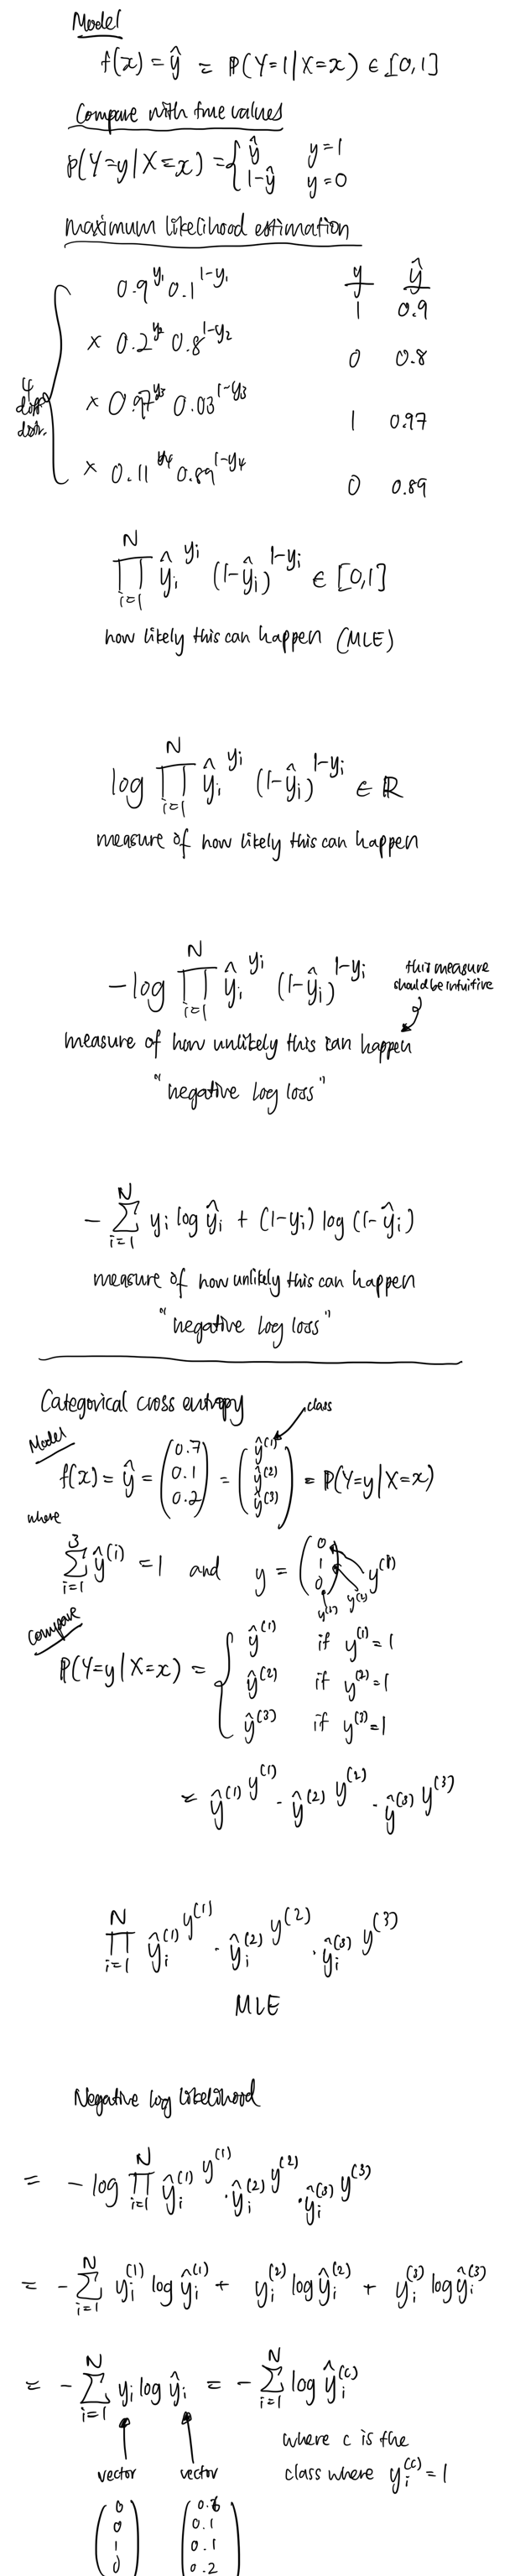 Model
f(x) = ŷ = P(Y=1|X=x) ∈ [0,1]
Compare with true values
P(Y=y|X=x) = { ŷ y=1
1-ŷ y=0
maximum likelihood estimation
y ŷ
0.9^y₁ 0.1^1-y₁ 1 0.9
× 0.2^y₂ 0.8^1-y₂ 0 0.8
4 diff distr.
× 0.97^y₃ 0.03^1-y₃ 1 0.97
× 0.11^y₄ 0.89^1-y₄ 0 0.89
∏_{i=1}^{N} ŷᵢ^yᵢ (1-ŷᵢ)^1-yᵢ ∈ [0,1]
how likely this can happen (MLE)
log ∏_{i=1}^{N} ŷᵢ^yᵢ (1-ŷᵢ)^1-yᵢ ∈ ℝ
measure of how likely this can happen
-log ∏_{i=1}^{N} ŷᵢ^yᵢ (1-ŷᵢ)^1-yᵢ
this measure
should be intuitive
measure of how unlikely this can happen
"negative log loss"
- ∑_{i=1}^{N} yᵢ log ŷᵢ + (1-yᵢ) log (1-ŷᵢ)
measure of how unlikely this can happen
"negative log loss"
Categorical cross entropy
class
Model
f(x) = ŷ = (0.7 0.1 0.2) = (ŷ^(1) ŷ^(2) ŷ^(3)) = P(Y=y|X=x)
where
∑_{i=1}^{3} ŷ^(i) = 1 and y = (0 1 0) y^(1) y^(2) y^(3)
Compare
P(Y=y|X=x) = { ŷ^(1) if y^(1)=1
ŷ^(2) if y^(2)=1
ŷ^(3) if y^(3)=1
= ŷ^(1) y^(1) · ŷ^(2) y^(2) · ŷ^(3) y^(3)
∏_{i=1}^{N} ŷᵢ^(1) y^(1) · ŷᵢ^(2) y^(2) · ŷᵢ^(3) y^(3)
MLE
Negative log likelihood
= -log ∏_{i=1}^{N} ŷᵢ^(1) y^(1) · ŷᵢ^(2) y^(2) · ŷᵢ^(3) y^(3)
= -∑_{i=1}^{N} yᵢ^(1) log ŷᵢ^(1) + yᵢ^(2) log ŷᵢ^(2) + yᵢ^(3) log ŷᵢ^(3)
= -∑_{i=1}^{N} yᵢ log ŷᵢ = -∑_{i=1}^{N} log ŷᵢ^(c)
where c is the
class where yᵢ^(c) = 1
vector vector
(0 0 1 0) (0.6 0.1 0.1 0.2)